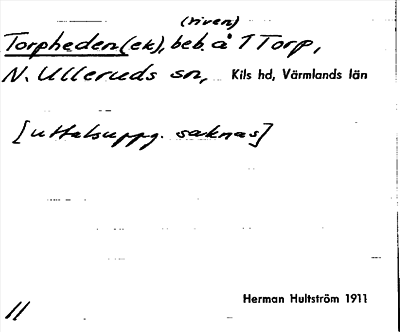 (riven)
Torpheden (ek), beb. å 1 Torp,
N. Ulleruds sn, Kils hd, Värmlands län
[uttalsuppg. saknas]
Herman Hultström 1911
11